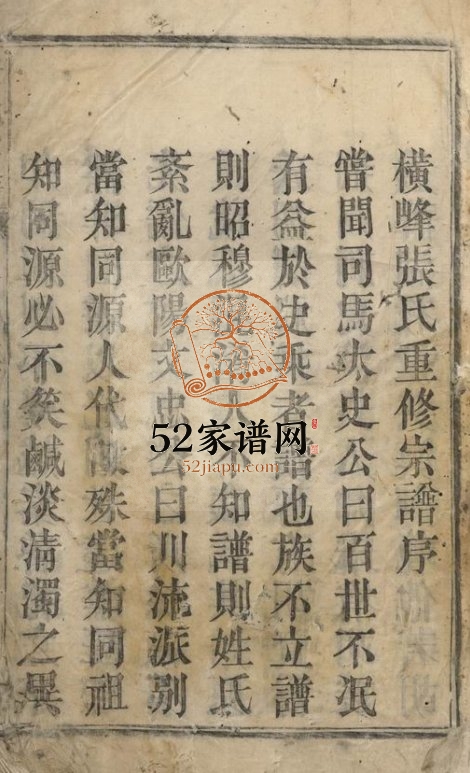 橫峰張氏重修宗譜序
嘗聞司馬太史公曰百世不泯
有益於史乘者譜也族不立譜
則昭穆混淆人不知譜則姓氏
紊亂歐陽文忠公曰川流派別
當知同源人代雖殊當知同祖
知同源必不矣鹹淡清濁之異
52家谱网
52jiapu.com